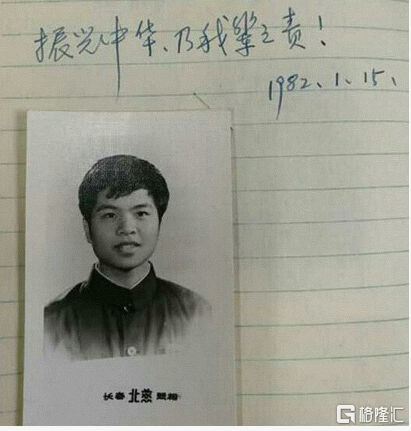 振兴中华、乃我辈之责!
1982.1.15.
长春 北燕 照相
格隆汇